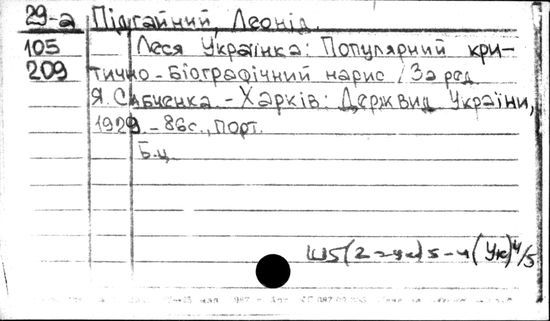 29-а Підгайний, Леонід.
105 Леся Українка: Популярний кри-
209 тично-біографічний нарис / За ред.
Я. Савченка. - Харків: Держвид України,
1929 - 86 с., порт.
Б.ц.
Ш5(2=Ук)5-4(Ук)4/5